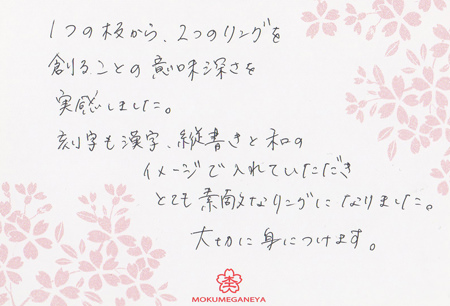 1つの板から、2つのリングを
創ることの意味深さを
実感しました。
刻字も漢字、縦書きと和の
イメージで入れていただき
とても素敵なリングになりました。
大切に身につけます。
MOKUMEGANEYA